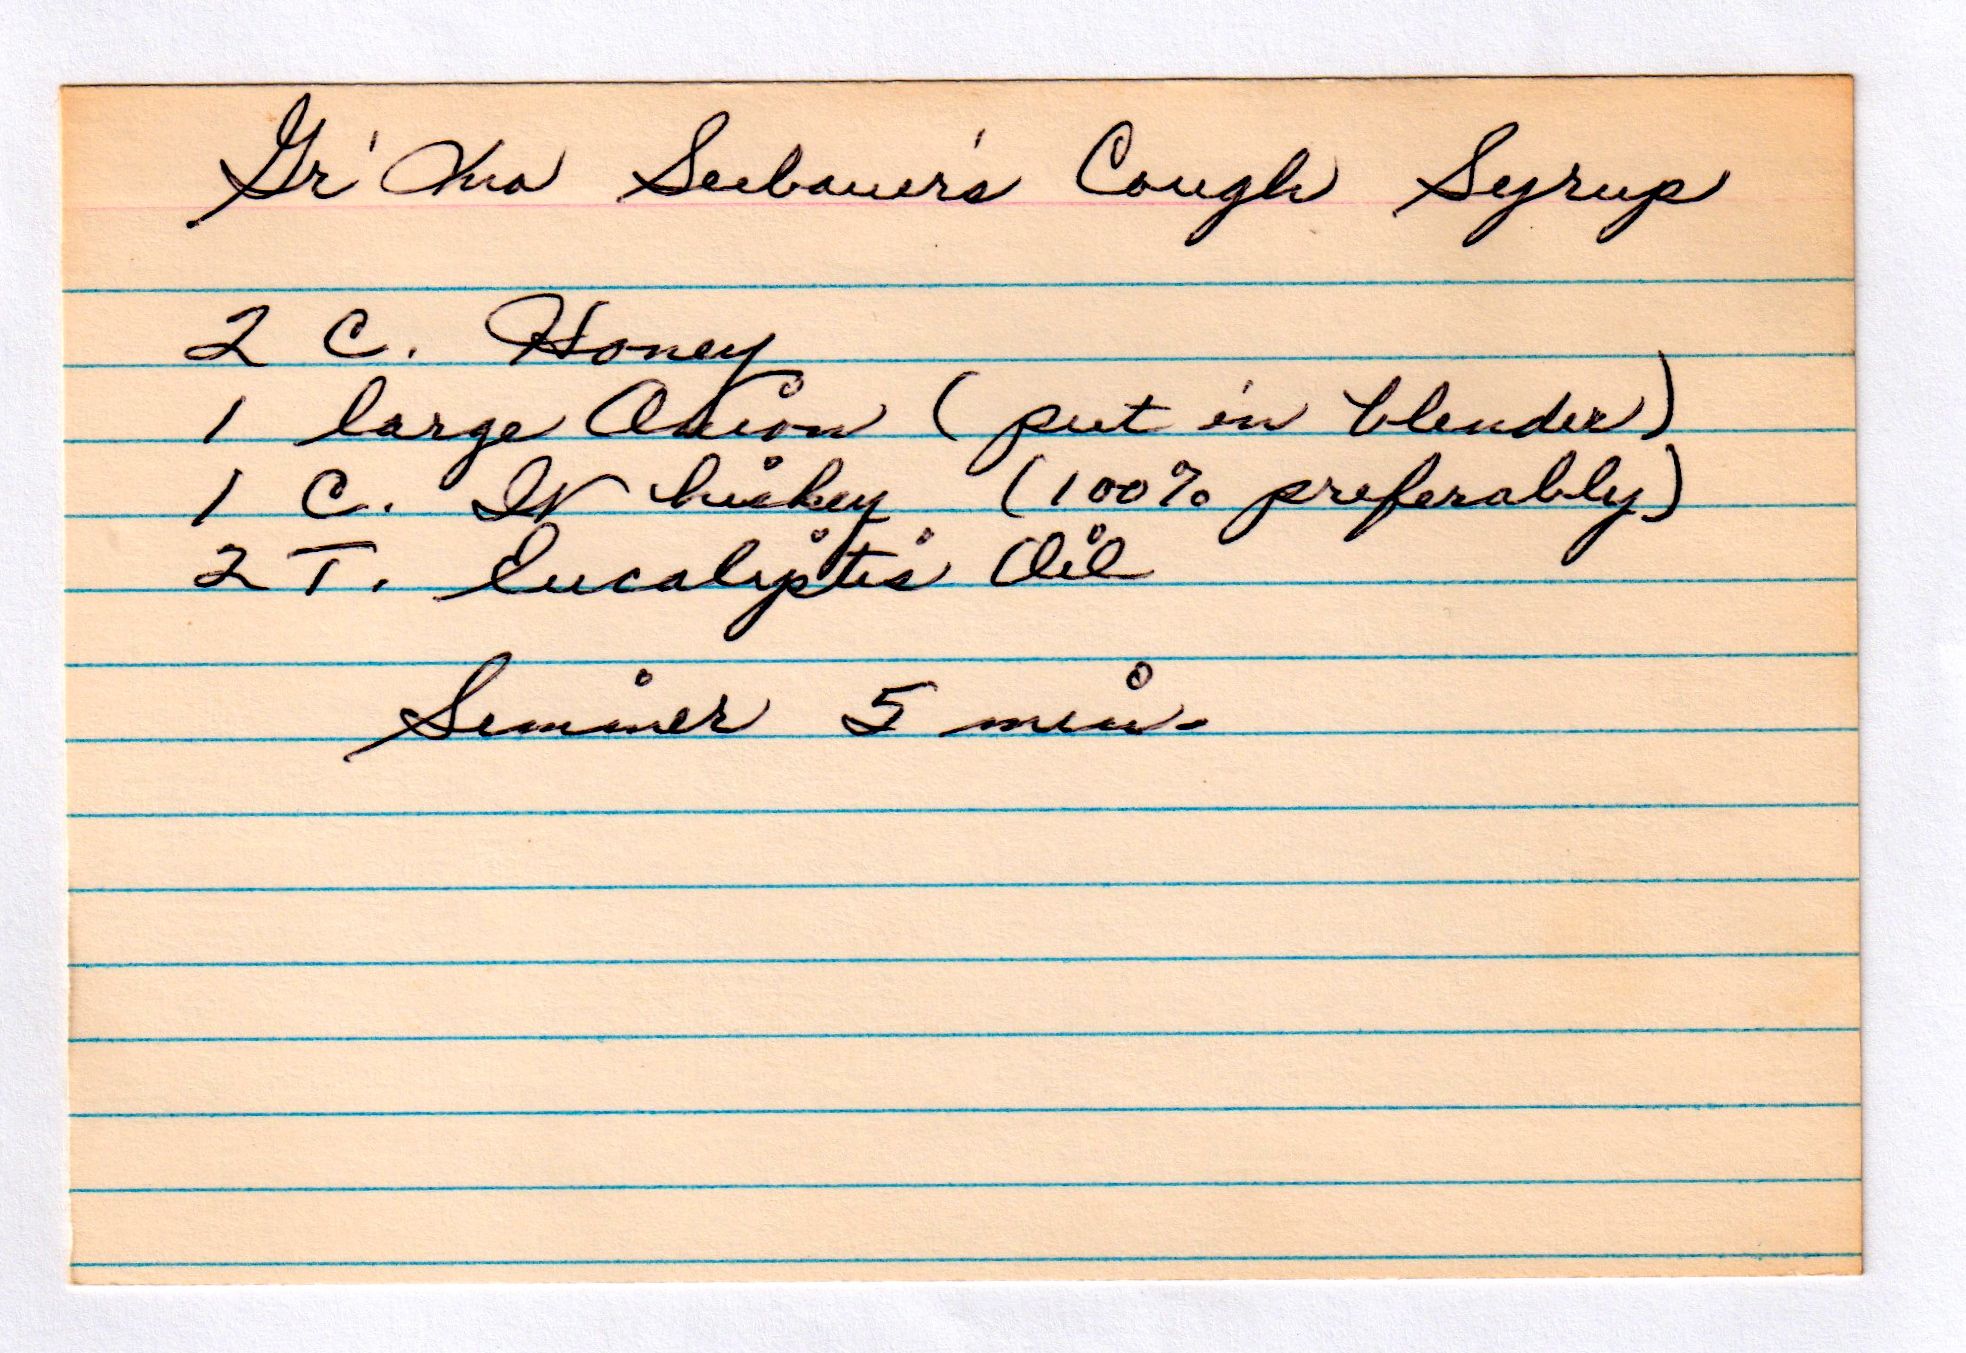 Gr'Ma Seebauer's Cough Syrup
2 C. Honey
1 large Onion (put in blender)
1 C. Whiskey (100% preferably)
2 T. Eucaliptis Oil
Simmer 5 min.